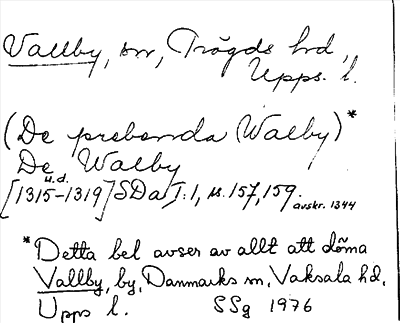 Vallby, sn, Trögds hd,
Upps. l.
(De prebenda Walby)*
De Walby
u.d.
[1315-1319] SDa I:1, s. 157, 159.
avskr. 1344
*Detta bel avser av allt att döma
Vallby, by, Danmarks sn, Vaksala hd,
Upps l. SSg 1976